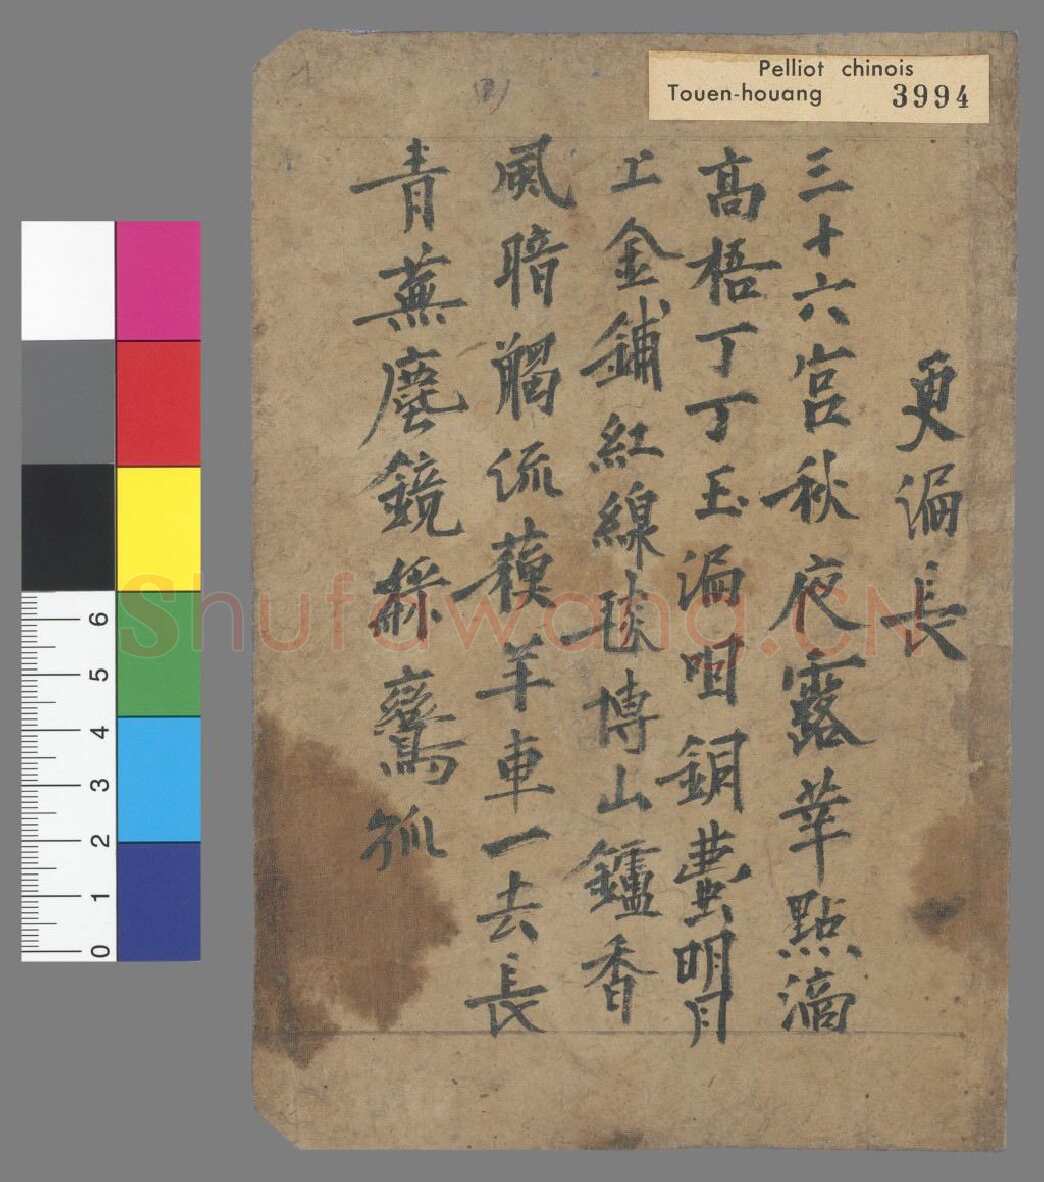 Pelliot chinois
Touen-houang 3994
更漏長
三十六宮秋夜露華點滴
高梧丁丁玉漏咽銅壺明月
上金鋪紅線毯博山鑪香
風暗觸流蘇羊車一去長
青蕪塵鏡綵鸞孤
6
5
4
3
2
1
0
Shufawang.CN